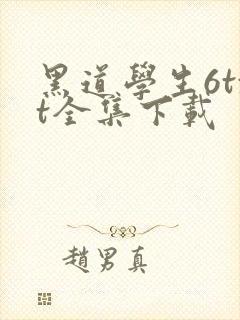 黑道學生6tx
t全集下載
趙男真